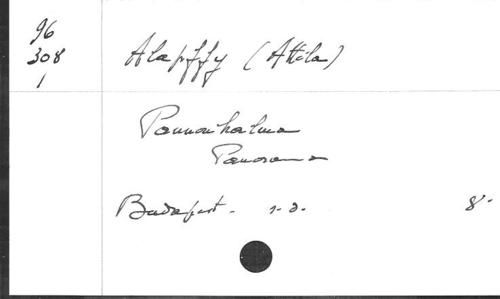 96
308
1
Alapffy (Attila)
Pannonhalma
Panorama
Budapest - s.d. 8°